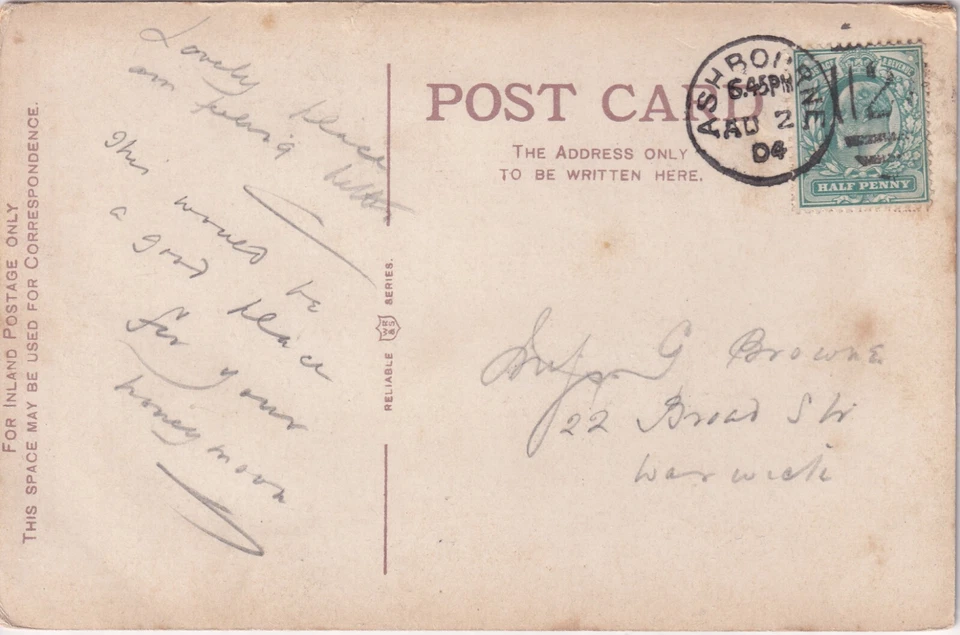 FOR INLAND POSTAGE ONLY
THIS SPACE MAY BE USED FOR CORRESPONDENCE.
Lovely place
am feeling
This would be
a good place
for your
honeymoon
RELIABLE WR&S SERIES.
POST CARD
THE ADDRESS ONLY
TO BE WRITTEN HERE.
ASHBOURNE
6.45PM
AU 2
04
E.REVENUE
HALF PENNY
Miss G Browne
22 Broad Str
Warwick